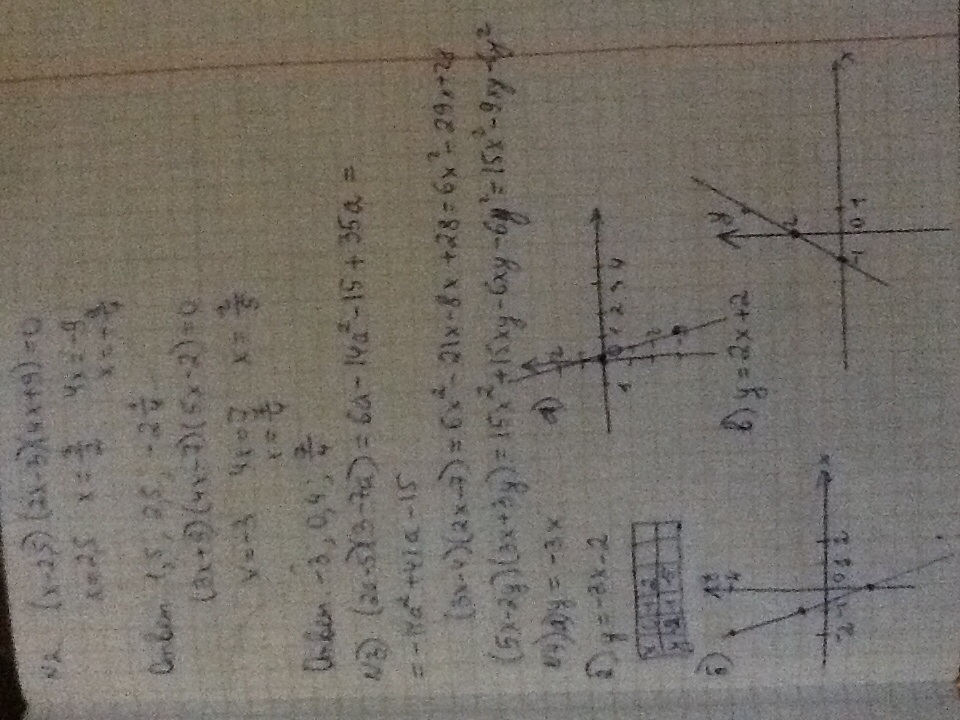 N2 (x-2,5)(2x-3)(4x+9)=0
x=2,5 x=3/2 4x=-9
x=-9/4
Ответ: 1,5; 2,5; -2 1/4
(3x+9)(4x-7)(5x-2)=0
x=-3 4x=7 x=2/5
x=7/4
Ответ: -3; 0,4; 7/4
N3) (2a-5)(3-7a)=6a-14a²-15+35a=
=-14a²+41a-15
(3x-4)(2x-7)=6x²-21x-8x+28=6x²-29x+28
(5x-2y)(3x+3y)=15x²+15xy-6xy-6y²=15x²-9xy-6y²
N4) a) y=-3x
б) y=-3x-2
a)
0 1 2 3 4
x
y
в) y=2x+2
б)
x
y
2
0 1
-1